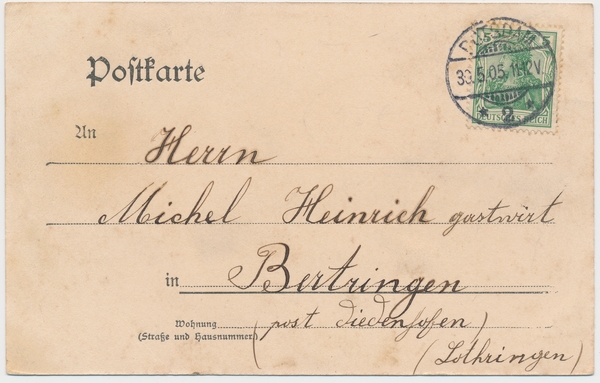 Postkarte
5
30.5.05. 11-12V.
* 2
DEUTSCHES REICH
An Herrn
Michel Heinrich gastwirt
in Bertringen
Wohnung (post Diedenhofen)
(Straße und Hausnummer)
(Lothringen)